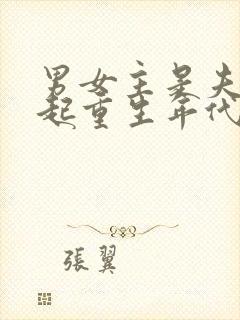 男女主是夫
起重生年代
張翼